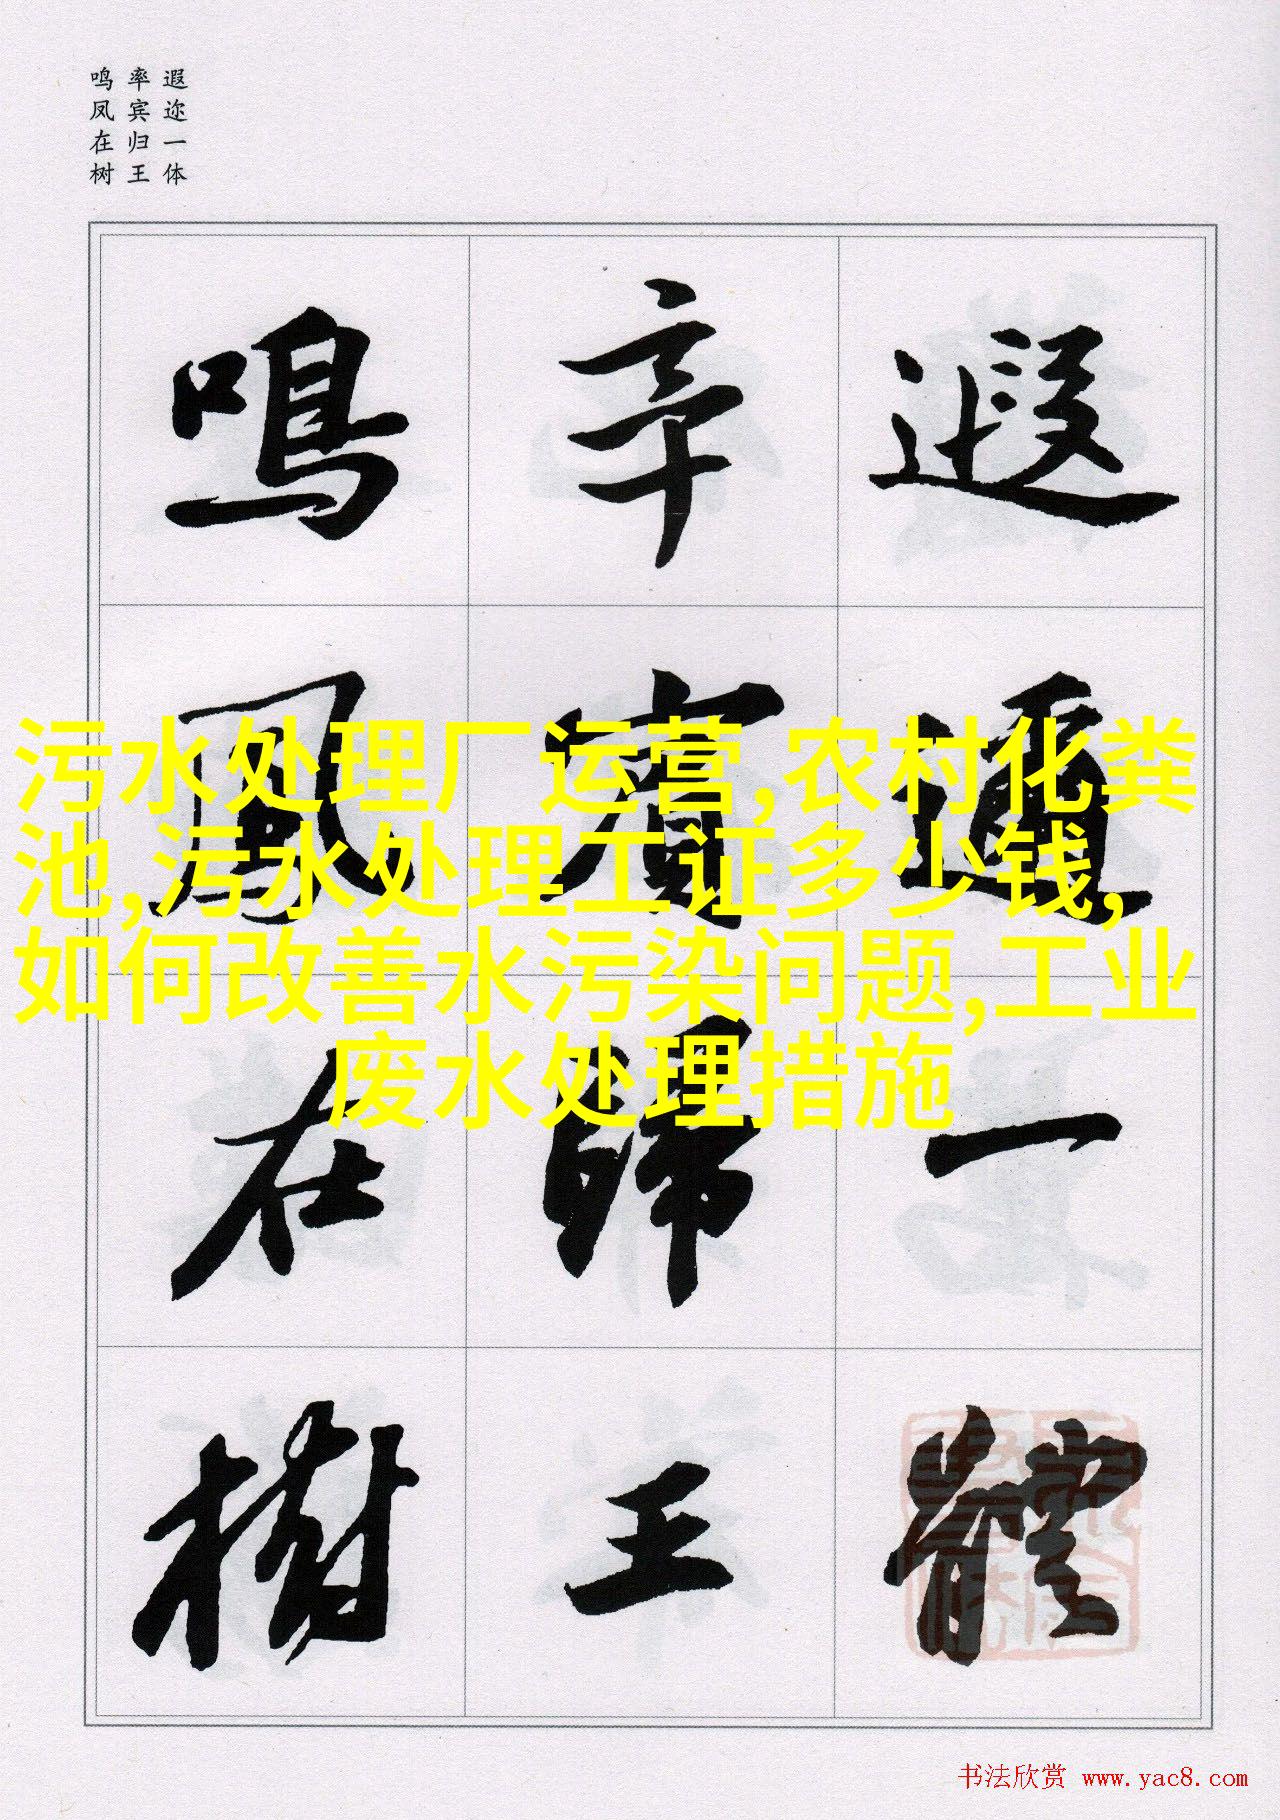 遐迩一体
率宾归王
鸣凤在树
遐邇一體
率賓歸王
鳴鳳在樹
污水处理厂运营,农村化粪
池,污水处理工证多少钱,
如何改善水污染问题,工业
废水处理措施
书法欣赏 www.yac8.com